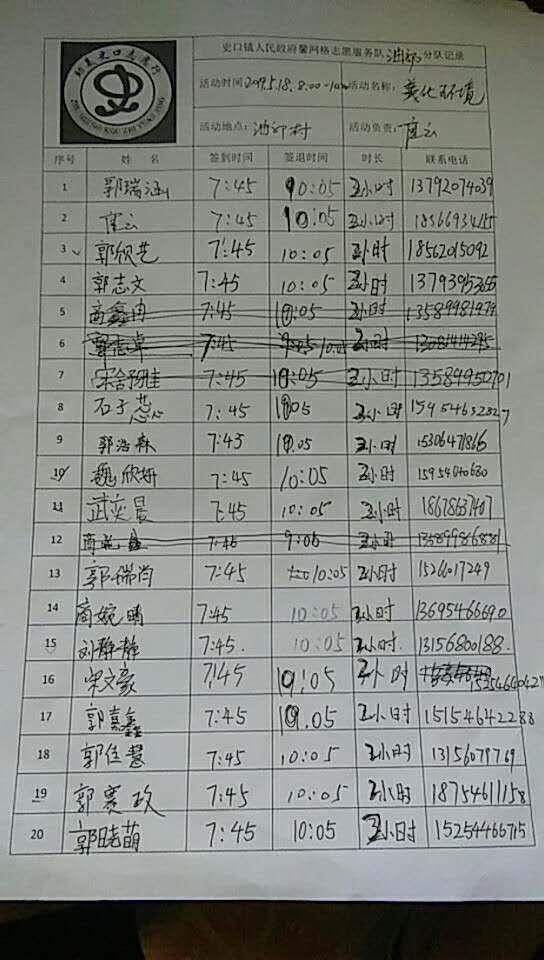 史口镇人民政府馨网格志愿服务队油郭分队记录
活动时间 2019.5.18. 8:00-10:00 活动名称: 美化环境
活动地点: 油郭村 活动负责: 崔云
序号 姓 名 签到时间 签退时间 时长 联系电话
1 郭瑞涵 7:45 10:05 2小时 13792074039
2 崔云 7:45 10:05 2小时
3 郭欣艺 7:45 10:05 2小时 18562015092
4 郭志文 7:45 10:05 2小时
5 7:45 10:05 2小时 13589981979
6 7:45 10:05 2小时
7 7:45 10:05 2小时 13589950701
8 石子蕊 7:45 10:05 2小时 15954652827
9 郭浩森 7:45 10:05 2小时 15306471866
10 魏欣妍 7:45 10:05 2小时 15954040630
11 武奕晨 7:45 10:05 2小时 18678637407
12 7:45 9:05 2小时 13589986881
13 郭瑞尚 7:45 10:05 2小时 15266017249
14 商婉晴 7:45 10:05 2小时 13695466690
15 刘静静 7:45. 10:05 2小时. 13156800188.
16 宋文豪 7:45 10:05 2小时
17 郭嘉鑫 7:45 10.05 2小时 15154642288
18 郭佳慧 7:45 10:05 2小时 13156079769
19 郭赛玫 7:45 10:05 2小时 18754611158
20 郭晓萌 7:45 10:05 2小时 15254466715